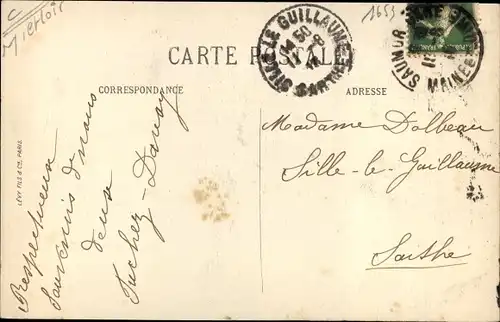 C
1653
SILLÉ LE GUILLAUME
SARTHE
SAUMUR
MAINE & L
CARTE POSTALE
CORRESPONDANCE
ADRESSE
LÉVY FILS & CIE, PARIS
Respectueux
souvenirs de nous
deux
Madame Dalbeau
Sille-le-Guillaume
Sarthe